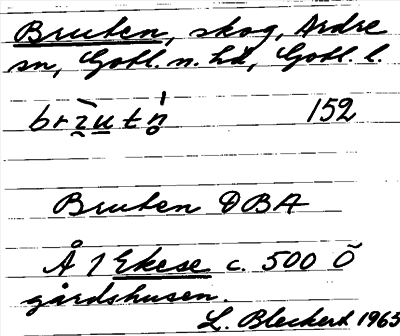 Bruten, skog, Ardre
sn, Gotl. n. hd, Gotl. l.
152
Bruten DBA
Å 1 Ekese c. 500 Ö
gårdshusen.
L. Bleckert 1965